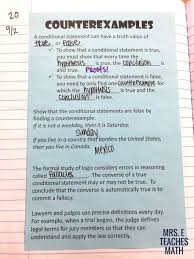 20
9/12
COUNTEREXAMPLES
A conditional statement can have a truth value of
true or False
✓ To show that a conditional statement is true,
you must show that every time the
hypothesis is true, the conclusion is
also true. PROOFS!
✓ To show that a conditional statement is false,
you need to only find one counterexample for
which the hypothesis is true and the
conclusion is false.
Show that the conditional statements are false by
finding a counterexample.
If it is not a weekday, then it is Saturday.
Sunday
If you live in a country that borders the United States,
then you live in Canada.
Mexico
The formal study of logic considers errors in reasoning
called fallacies. The converse of a true
conditional statement may or may not be true. To
conclude that the converse is automatically true is to
commit a fallacy.
Lawyers and judges use precise definitions every day.
For example, when a trial begins, the judge defines
legal terms for jury members so that they can
understand and apply the law correctly.
MRS. E
TEACHES
MATH